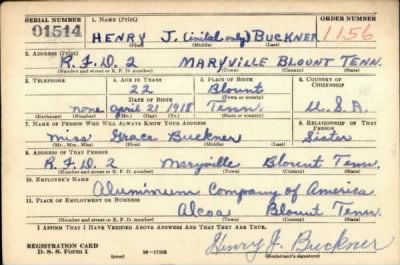 SERIAL NUMBER 1. NAME (Print) ORDER NUMBER
01514 HENRY J. (inital only) BUCKNER 1156
(First) (Middle) (Last)
2. ADDRESS (Print)
R.F.D. 2 MARYVILLE BLOUNT TENN.
(Number and street or R. F. D. number) (Town) (County) (State)
3. TELEPHONE 4. AGE IN YEARS 5. PLACE OF BIRTH 6. COUNTRY OF CITIZENSHIP
22 Blount
DATE OF BIRTH (Town or county)
none April 21 1918 Tenn. U.S.A.
7. NAME OF PERSON WHO WILL ALWAYS KNOW YOUR ADDRESS 8. RELATIONSHIP OF THAT PERSON
Miss Grace Buckner Sister
(Mr., Mrs., Miss) (First) (Middle) (Last)
9. ADDRESS OF THAT PERSON
R.F.D. 2 Maryville Blount Tenn.
(Number and street or R. F. D. number) (Town) (County) (State)
10. EMPLOYER'S NAME
Aluminum Company of America
11. PLACE OF EMPLOYMENT OR BUSINESS
Alcoa Blount Tenn.
(Number and street or R. F. D. number) (Town) (County) (State)
I AFFIRM THAT I HAVE VERIFIED ABOVE ANSWERS AND THAT THEY ARE TRUE.
Henry J. Buckner
REGISTRATION CARD
D. S. S. Form 1 (over) (Registrant's signature)